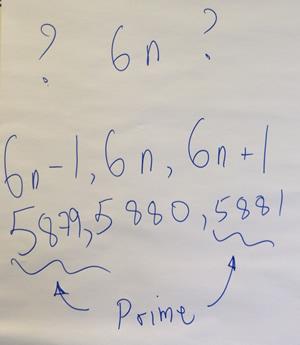 ? 6n ?
6n-1, 6n, 6n+1
5879, 5880, 5881
Prime